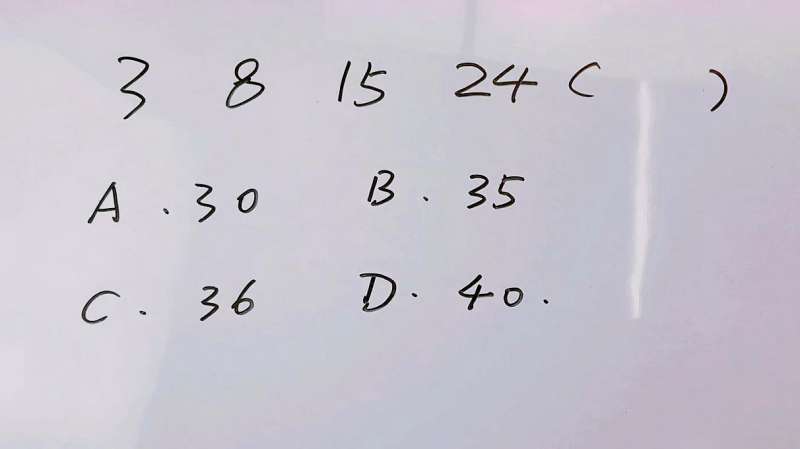 3 8 15 24 ( )
A. 30 B. 35
C. 36 D. 40.